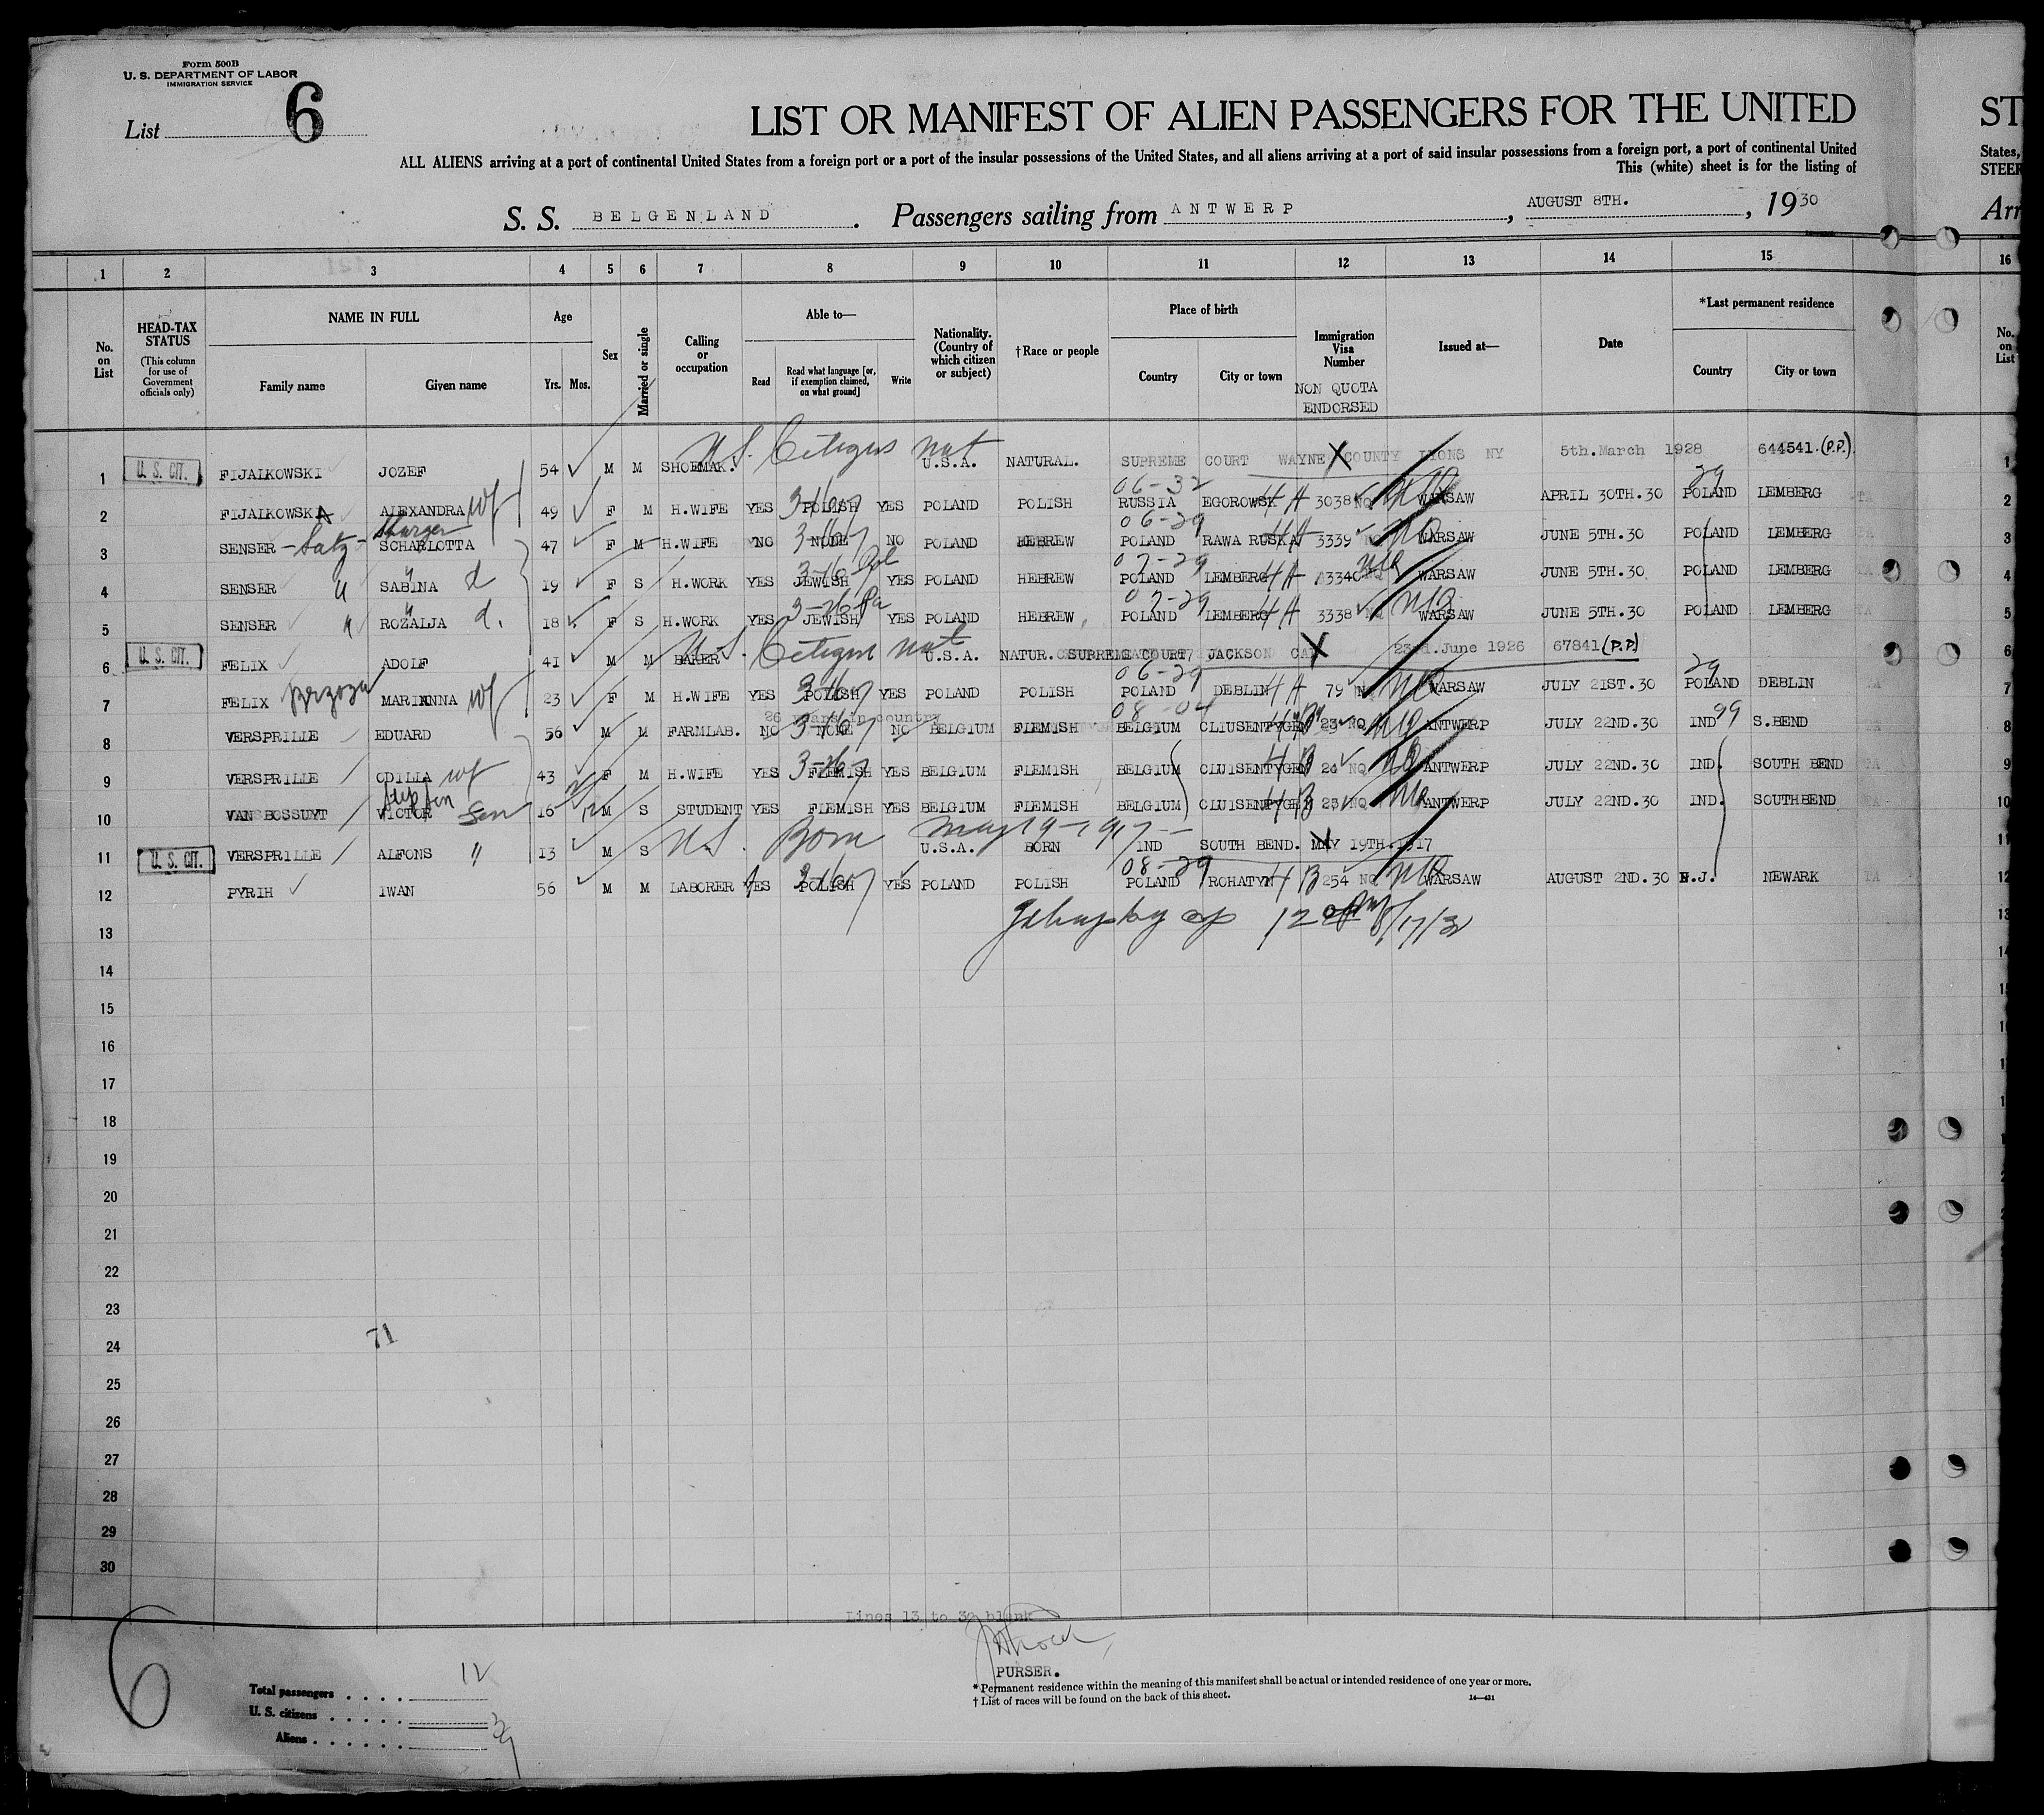 Form 500B
U. S. DEPARTMENT OF LABOR
IMMIGRATION SERVICE
List 6
LIST OR MANIFEST OF ALIEN PASSENGERS FOR THE UNITED
ST
ALL ALIENS arriving at a port of continental United States from a foreign port or a port of the insular possessions of the United States, and all aliens arriving at a port of said insular possessions from a foreign port, a port of continental United
States,
This (white) sheet is for the listing of
STEER
S. S. BELGENLAND. Passengers sailing from ANTWERP, AUGUST 8TH., 1930
Arr
1 2 3 4 5 6 7 8 9 10 11 12 13 14 15 16
No. on List
HEAD-TAX STATUS
(This column for use of Government officials only)
NAME IN FULL
Family name Given name
Age
Yrs. Mos.
Sex
Married or single
Calling or occupation
Able to—
Read
Read what language [or, if exemption claimed, on what ground]
Write
Nationality. (Country of which citizen or subject)
†Race or people
Place of birth
Country City or town
Immigration Visa Number
NON QUOTA
ENDORSED
Issued at—
Date
*Last permanent residence
Country City or town
No. on List
U.S. Citizens nat
1 U. S. CIT. FIJALKOWSKI JOZEF 54 M M SHOEMAK. U.S.A. NATURAL. SUPREME COURT WAYNE COUNTY LYONS NY 5th.March 1928 644541.(P.P.) 1
06-32 29
2 FIJALKOWSKA ALEXANDRA wf 49 F M H.WIFE YES POLISH YES POLAND POLISH RUSSIA EGOROWSK 3038 NQ WARSAW APRIL 30TH.30 POLAND LEMBERG 2
06-29
3 SENSER -Satz- SCHARLOTTA 47 F M H.WIFE NO NONE NO POLAND HEBREW POLAND RAWA RUSKA 3339 NQ WARSAW JUNE 5TH.30 POLAND LEMBERG 3
07-29
4 SENSER " SABINA d 19 F S H.WORK YES JEWISH YES POLAND HEBREW POLAND LEMBERG 3340 NQ WARSAW JUNE 5TH.30 POLAND LEMBERG 4
07-29
5 SENSER " ROZALJA d. 18 F S H.WORK YES JEWISH YES POLAND HEBREW POLAND LEMBERG 3338 NQ WARSAW JUNE 5TH.30 POLAND LEMBERG 5
U.S. Citizen nat
6 U. S. CIT. FELIX ADOLF 41 M M BAKER U.S.A. NATUR. SUPREME COURT JACKSON 23rd.June 1926 67841(P.P) 6
06-29 29
7 FELIX Brzoza MARIANNA wf 23 F M H.WIFE YES POLISH YES POLAND POLISH POLAND DEBLIN 79 NQ WARSAW JULY 21ST.30 POLAND DEBLIN 7
26 years in country 08-04 99
8 VERSPRILLE EDUARD 56 M M FARMLAB. NO NONE NO BELGIUM FLEMISH BELGIUM CLUISENTYGEM 23 NQ ANTWERP JULY 22ND.30 IND S.BEND 8
9 VERSPRILLE ODILLA wf 43 F M H.WIFE YES FLEMISH YES BELGIUM FLEMISH BELGIUM CLUISENTYGEM 24 NQ ANTWERP JULY 22ND.30 IND. SOUTH BEND 9
step son
10 VAN BOSSUYT VICTOR Son 16 M S STUDENT YES FLEMISH YES BELGIUM FLEMISH BELGIUM CLUISENTYGEM 25 NQ ANTWERP JULY 22ND.30 IND. SOUTHBEND 10
U.S. Born May 19-1917-
11 U. S. CIT. VERSPRILLE ALFONS " 13 M S U.S.A. BORN IND SOUTH BEND. MAY 19TH.1917 11
08-29
12 PYRIH IWAN 56 M M LABORER YES POLISH YES POLAND POLISH POLAND ROHATYN 254 NQ WARSAW AUGUST 2ND.30 N.J. NEWARK 12
13
14
15
16
17
18
19
20
21
22
23
24 71
25
26
27
28
29
30
Lines 13 to 30 blank
6
PURSER.
Total passengers . . . . 12
U. S. citizens . . . . . 3
Aliens . . . . . . 9
* Permanent residence within the meaning of this manifest shall be actual or intended residence of one year or more.
† List of races will be found on the back of this sheet.
14—431